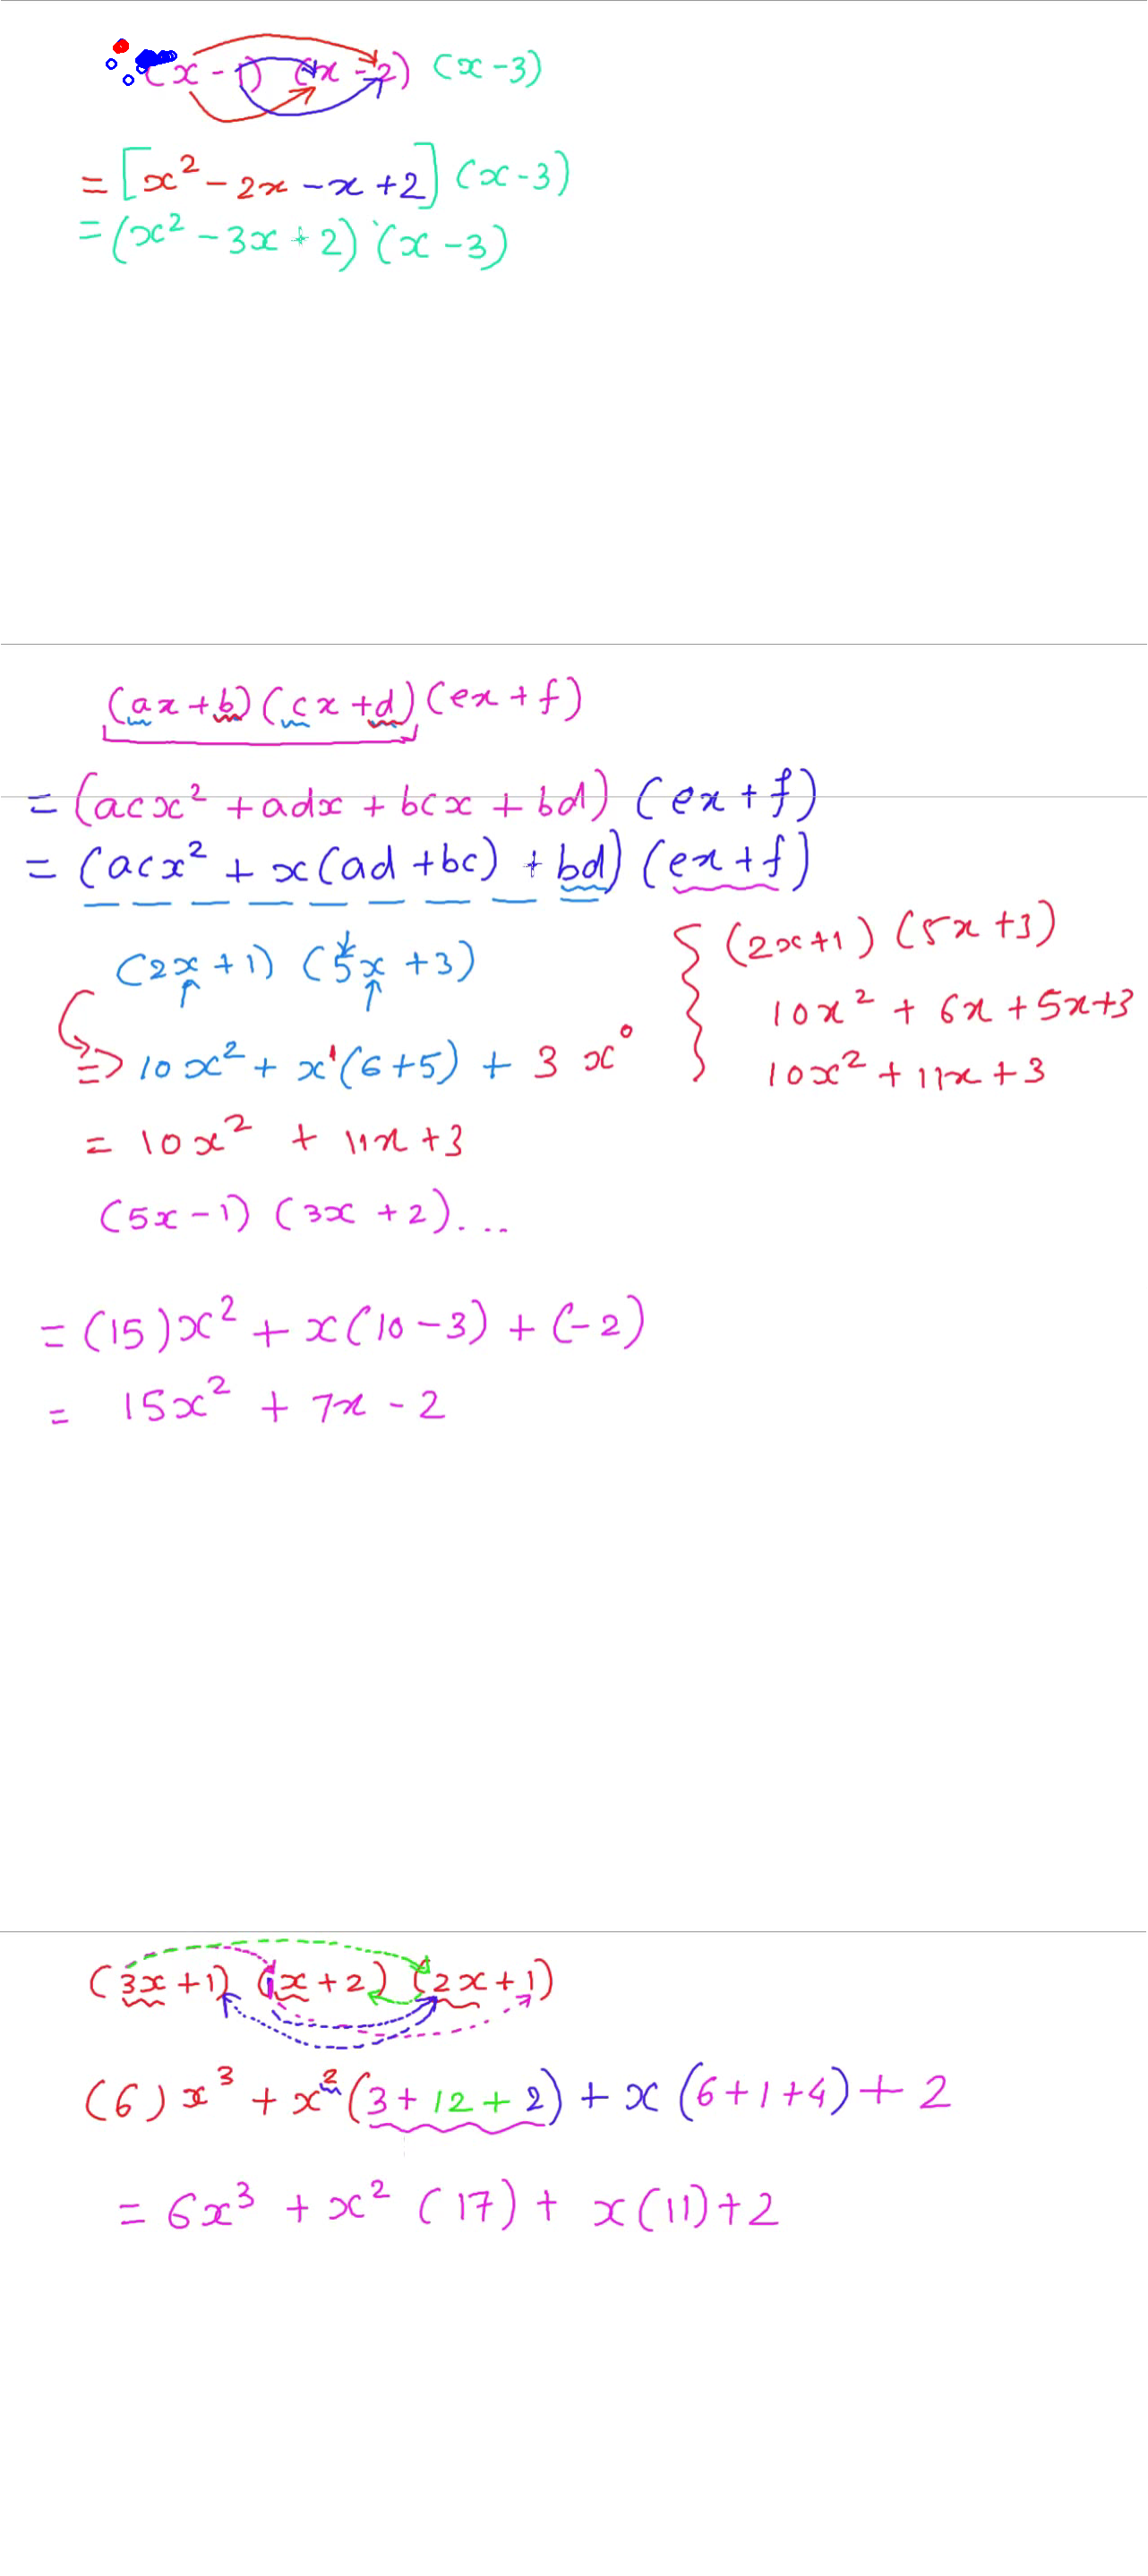 (x - 1) (x - 2) (x - 3)
= [x² - 2x - x + 2] (x - 3)
= (x² - 3x + 2) (x - 3)
(ax + b) (cx + d) (ex + f)
= (acx² + adx + bcx + bd) (ex + f)
= (acx² + x(ad + bc) + bd) (ex + f)
(2x + 1) (5x + 3)
=> 10x² + x¹(6 + 5) + 3x⁰
= 10x² + 11x + 3
(2x + 1) (5x + 3)
10x² + 6x + 5x + 3
10x² + 11x + 3
(5x - 1) (3x + 2)...
= (15)x² + x(10 - 3) + (-2)
= 15x² + 7x - 2
(3x + 1) (x + 2) (2x + 1)
(6)x³ + x²(3 + 12 + 2) + x(6 + 1 + 4) + 2
= 6x³ + x²(17) + x(11) + 2